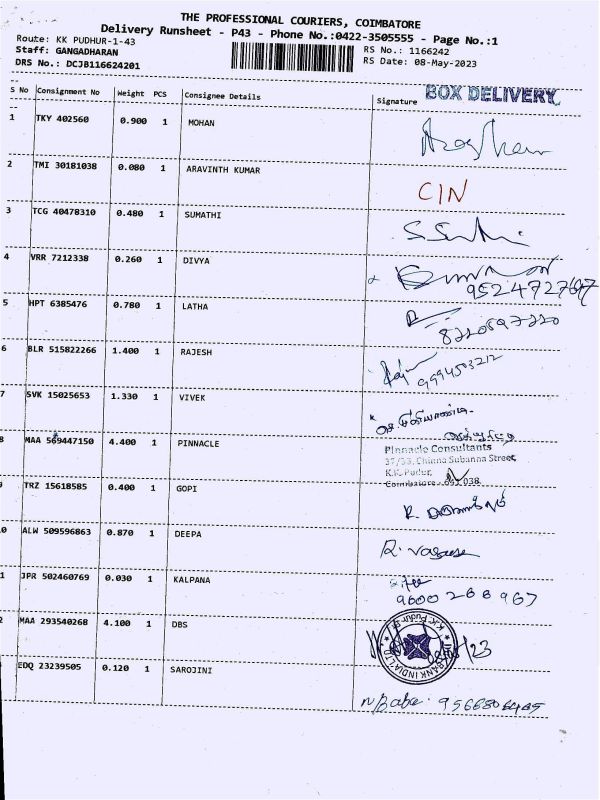 THE PROFESSIONAL COURIERS, COIMBATORE
Delivery Runsheet - P43 - Phone No.:0422-3505555 - Page No.:1
Route: KK PUDHUR-1-43 RS No.: 1166242
Staff: GANGADHARAN RS Date: 08-May-2023
DRS No.: DCJB116624201
S No Consignment No Weight PCS Consignee Details Signature BOX DELIVERY
1 TKY 402560 0.900 1 MOHAN
2 TMI 30181038 0.080 1 ARAVINTH KUMAR CIN
3 TCG 40478310 0.480 1 SUMATHI
4 VRR 7212338 0.260 1 DIVYA
5 HPT 6385476 0.780 1 LATHA 8220597220
6 BLR 515822266 1.400 1 RAJESH 9994503212
7 SVK 15025653 1.330 1 VIVEK
8 MAA 569447150 4.400 1 PINNACLE
Pinnacle Consultants
37/33, Chinna Subanna Street,
K.K. Pudur,
Coimbatore - 641 038.
TRZ 15618585 0.400 1 GOPI
0 ALW 509596863 0.870 1 DEEPA
1 JPR 502460769 0.030 1 KALPANA 9600268967
2 MAA 293540268 4.100 1 DBS
BANK INDIA LTD
EDQ 23239505 0.120 1 SAROJINI